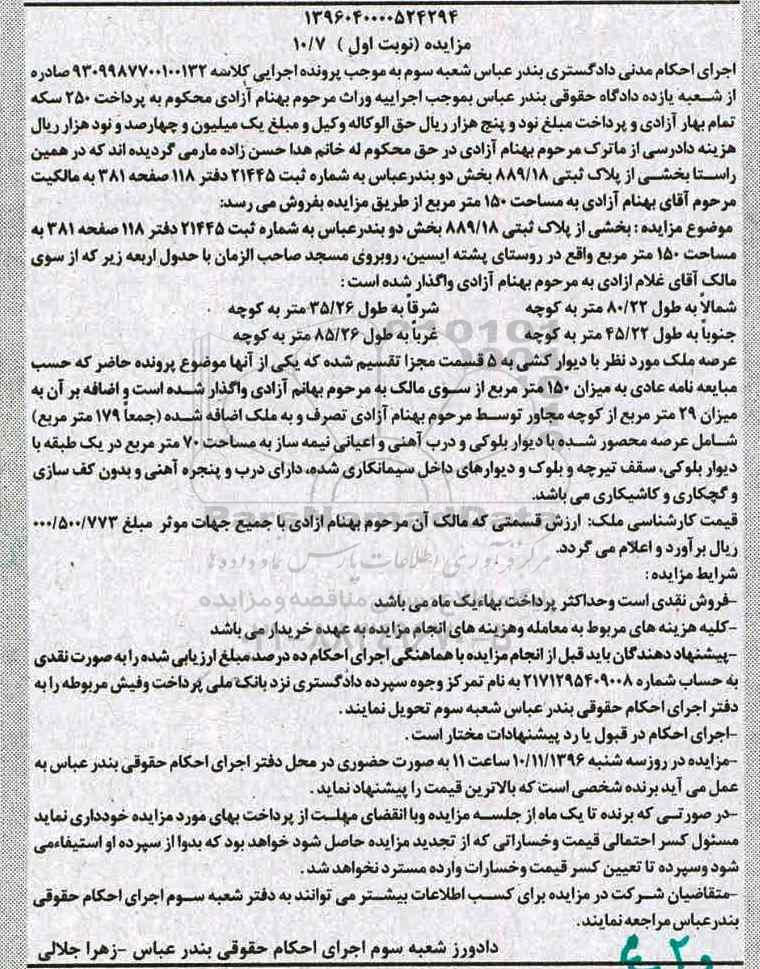 ۱۳۹۶۰۴۰۰۰۰۵۲۴۲۹۴
مزایده (نوبت اول ) ۱۰/۷
اجرای احکام مدنی دادگستری بندر عباس شعبه سوم به موجب پرونده اجرایی کلاسه ۹۳۰۹۹۸۷۷۰۰۱۰۰۱۳۲ صادره
از شعبه یازده دادگاه حقوقی بندر عباس بموجب اجراییه وراث مرحوم بهنام آزادی محکوم به پرداخت ۲۵۰ سکه
تمام بهار آزادی و پرداخت مبلغ نود و پنج هزار ریال حق الوکاله وکیل و مبلغ یک میلیون و چهارصد و نود هزار ریال
هزینه دادرسی از ماترک مرحوم بهنام آزادی در حق محکوم له خانم هدا حسن زاده مارمی گردیده اند که در همین
راستا بخشی از پلاک ثبتی ۸۸۹/۱۸ بخش دو بندرعباس به شماره ثبت ۲۱۴۴۵ دفتر ۱۱۸ صفحه ۳۸۱ به مالکیت
مرحوم آقای بهنام آزادی به مساحت ۱۵۰ متر مربع از طریق مزایده بفروش می رسد:
موضوع مزایده : بخشی از پلاک ثبتی ۸۸۹/۱۸ بخش دو بندرعباس به شماره ثبت ۲۱۴۴۵ دفتر ۱۱۸ صفحه ۳۸۱ به
مساحت ۱۵۰ متر مربع واقع در روستای پشته ایسین، روبروی مسجد صاحب الزمان با حدول اربعه زیر که از سوی
مالک آقای غلام ازادی به مرحوم بهنام آزادی واگذار شده است :
شمالاً به طول ۸۰/۲۲ متر به کوچه شرقاً به طول ۳۵/۲۶ متر به کوچه .
جنوباً به طول ۴۵/۲۲ متر به کوچه غرباً به طول ۸۵/۲۶ متر به کوچه
عرصه ملک مورد نظر با دیوار کشی به ۵ قسمت مجزا تقسیم شده که یکی از آنها موضوع پرونده حاضر که حسب
مبایعه نامه عادی به میزان ۱۵۰ متر مربع از سوی مالک به مرحوم بهانم آزادی واگذار شده است و اضافه بر آن به
میزان ۲۹ متر مربع از کوچه مجاور توسط مرحوم بهنام آزادی تصرف و به ملک اضافه شده (جمعاً ۱۷۹ متر مربع)
شامل عرصه محصور شده با دیوار بلوکی و درب آهنی و اعیانی نیمه ساز به مساحت ۷۰ متر مربع در یک طبقه با
دیوار بلوکی، سقف تیرچه و بلوک و دیوارهای داخل سیمانکاری شده، دارای درب و پنجره آهنی و بدون کف سازی
و گچکاری و کاشیکاری می باشد.
قیمت کارشناسی ملک: ارزش قسمتی که مالک آن مرحوم بهنام ازادی با جمیع جهات موثر مبلغ ۰۰۰/۵۰۰/۷۷۳
ریال برآورد و اعلام می گردد.
شرایط مزایده :
-فروش نقدی است وحداکثر پرداخت بهاءیک ماه می باشد
-کلیه هزینه های مربوط به معامله وهزینه های انجام مزایده به عهده خریدار می باشد
-پیشنهاد دهندگان باید قبل از انجام مزایده با هماهنگی اجرای احکام ده درصد مبلغ ارزیابی شده را به صورت نقدی
به حساب شماره ۲۱۷۱۲۹۵۴۰۹۰۰۸ به نام تمرکز وجوه سپرده دادگستری نزد بانک ملی پرداخت وفیش مربوطه را به
دفتر اجرای احکام حقوقی بندر عباس شعبه سوم تحویل نمایند .
-اجرای احکام در قبول یا رد پیشنهادات مختار است .
-مزایده در روزسه شنبه ۱۰/۱۱/۱۳۹۶ ساعت ۱۱ به صورت حضوری در محل دفتر اجرای احکام حقوقی بندر عباس به
عمل می آید برنده شخصی است که بالاترین قیمت را پیشنهاد نماید .
-در صورتی که برنده تا یک ماه از جلسه مزایده وبا انقضای مهلت از پرداخت بهای مورد مزایده خودداری نماید
مسئول کسر احتمالی قیمت وخساراتی که از تجدید مزایده حاصل شود خواهد بود که بدوا از سپرده او استیفاءمی
شود وسپرده تا تعیین کسر قیمت وخسارات وارده مسترد نخواهد شد .
-متقاضیان شرکت در مزایده برای کسب اطلاعات بیشتر می توانند به دفتر شعبه سوم اجرای احکام حقوقی
بندرعباس مراجعه نمایند.
دادورز شعبه سوم اجرای احکام حقوقی بندر عباس -زهرا جلالی
ParsNamadData
مرکز فرآوری اطلاعات پارس نماد داده ها